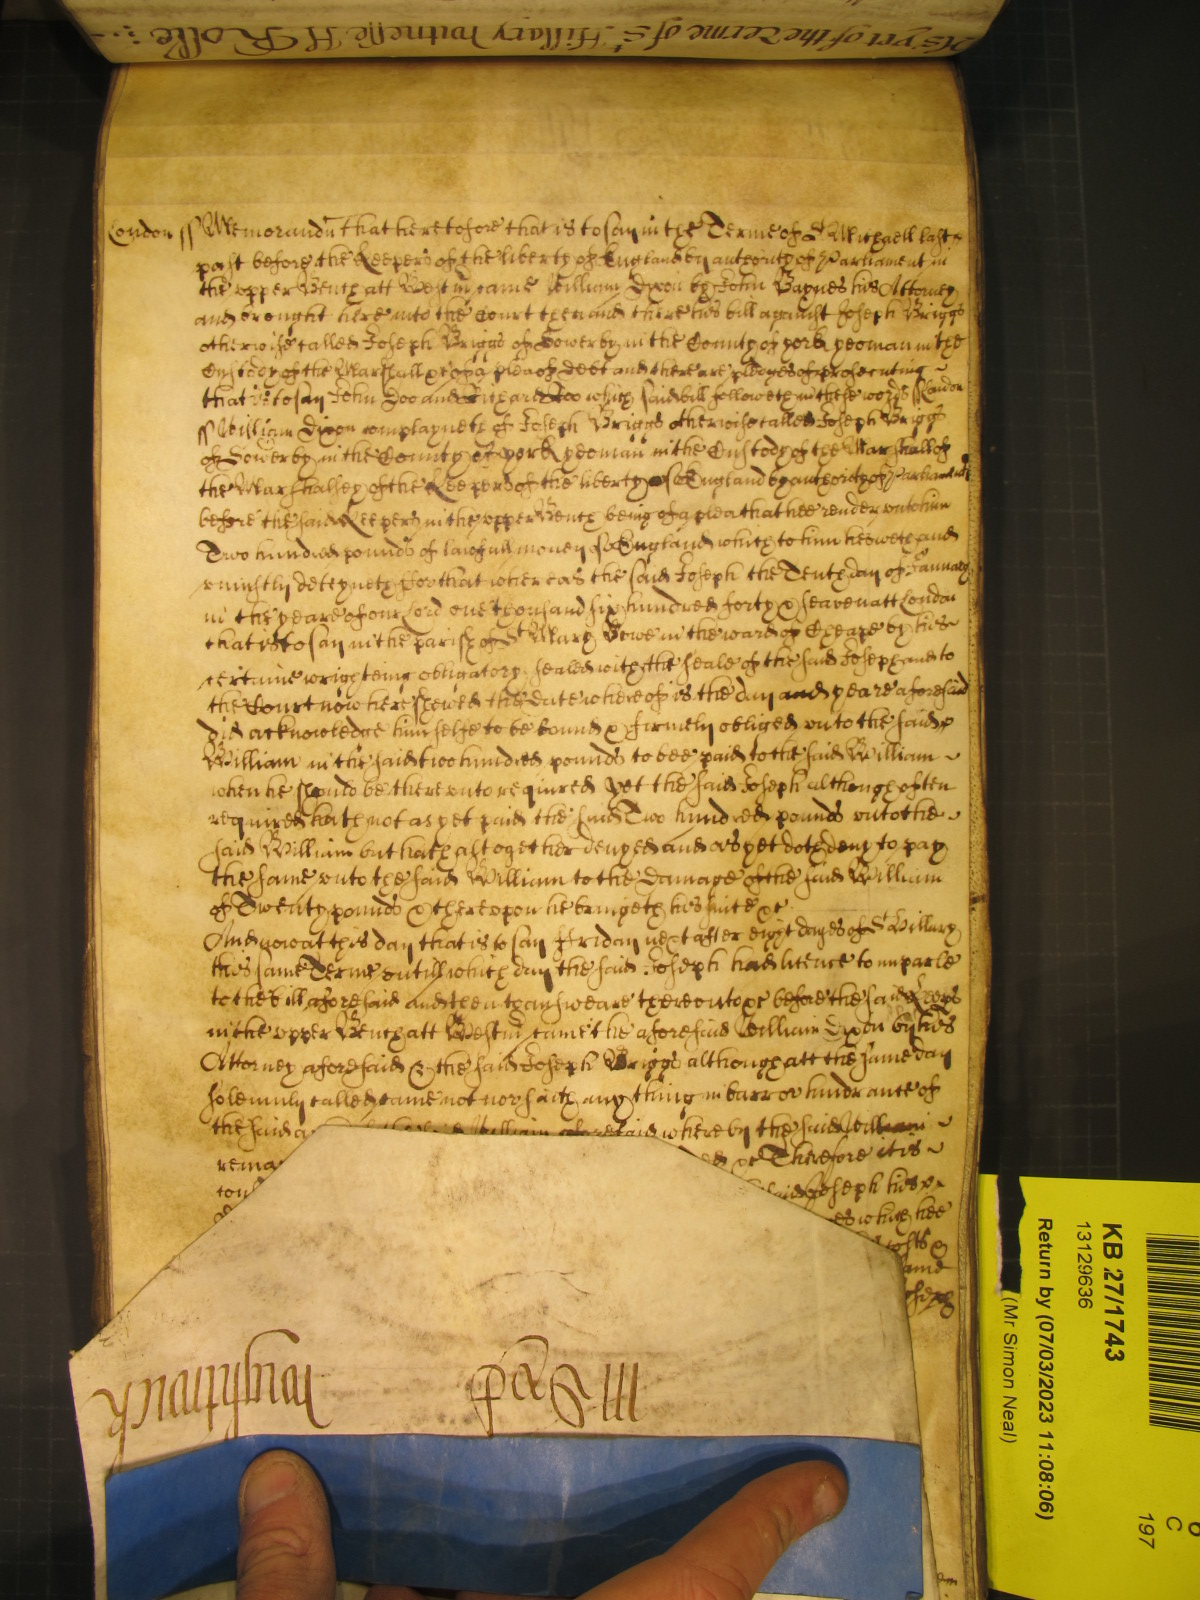 As yet of the Terme of St Hillary Witnesse H Rolle
London ss Memorandū that heretofore that is to say in the Terme of St Michaell last
past before the Keepers of the liberty of England by authority of Parliament in
the upper Bench att Westm̄ came William Dixon by John Baynes his Attorney
and brought here into the Court then and there his bill against Joseph Briggs
otherwise called Joseph Briggs of Sowerby in the County of york yeoman in the
Custody of the Marshall &c of a plea of debt and there are pledges of prosecuting
that is to say John Doo and Richard Roo which said bill followeth in these words ss London
ss William Dixon complayneth of Joseph Briggs otherwise called Joseph Briggs
of Sowerby in the County of york yeoman in the Custody of the Marshall of
the Marshalsey of the Keepers of the liberty of England by authority of Parliament
before the said Keepers in the upper Bench being of a plea that hee render unto him
Two hundred pounds of lawfull money of England which to him he oweth and
uniustly deteyneth For that whereas the said Joseph the Tenth day of January
in the yeare of our Lord one thousand six hundred forty & seaven att London
that is to say in the parish of St Mary Bowe in the ward of Cheape by his
certaine wrighteing obligatory sealed with the seale of the said Joseph and to
the Court now here shewed the date whereof is the day and yeare aforesaid
did acknowledge himselfe to be bound & firmely obliged unto the said
William in the said two hundred pounds to bee paid to the said William
when he should be thereunto required Yet the said Joseph although often
required hath not as yet paid the said Two hundred pounds unto the
said William but hath altogether denyed and as yet doth deny to pay
the same unto the said William to the Damage of the said William
of Twenty pounds & thereupon he bringeth his suite &c
And now at this day that is to say Friday next after eight dayes of St Hillary
this same Terme untill which day the said Joseph had licence to imparle
to the bill aforesaid and then to answeare thereunto &c before the said Keeps
in the upper Bench att Westm̄ came the aforesaid William Dixon by his
Attorney aforesaid & the said Joseph Briggs although att the same day
solemnly called came not nor saith any thing in barr or hindrance of
the said William aforesaid whereby the said William
&c Therefore it is
said Joseph his
which hee
costs &
same
Joseph
M Sed
KB 27/1743
13129636
Return by (07/03/2023 11:08:06)
(Mr Simon Neal)
C
197